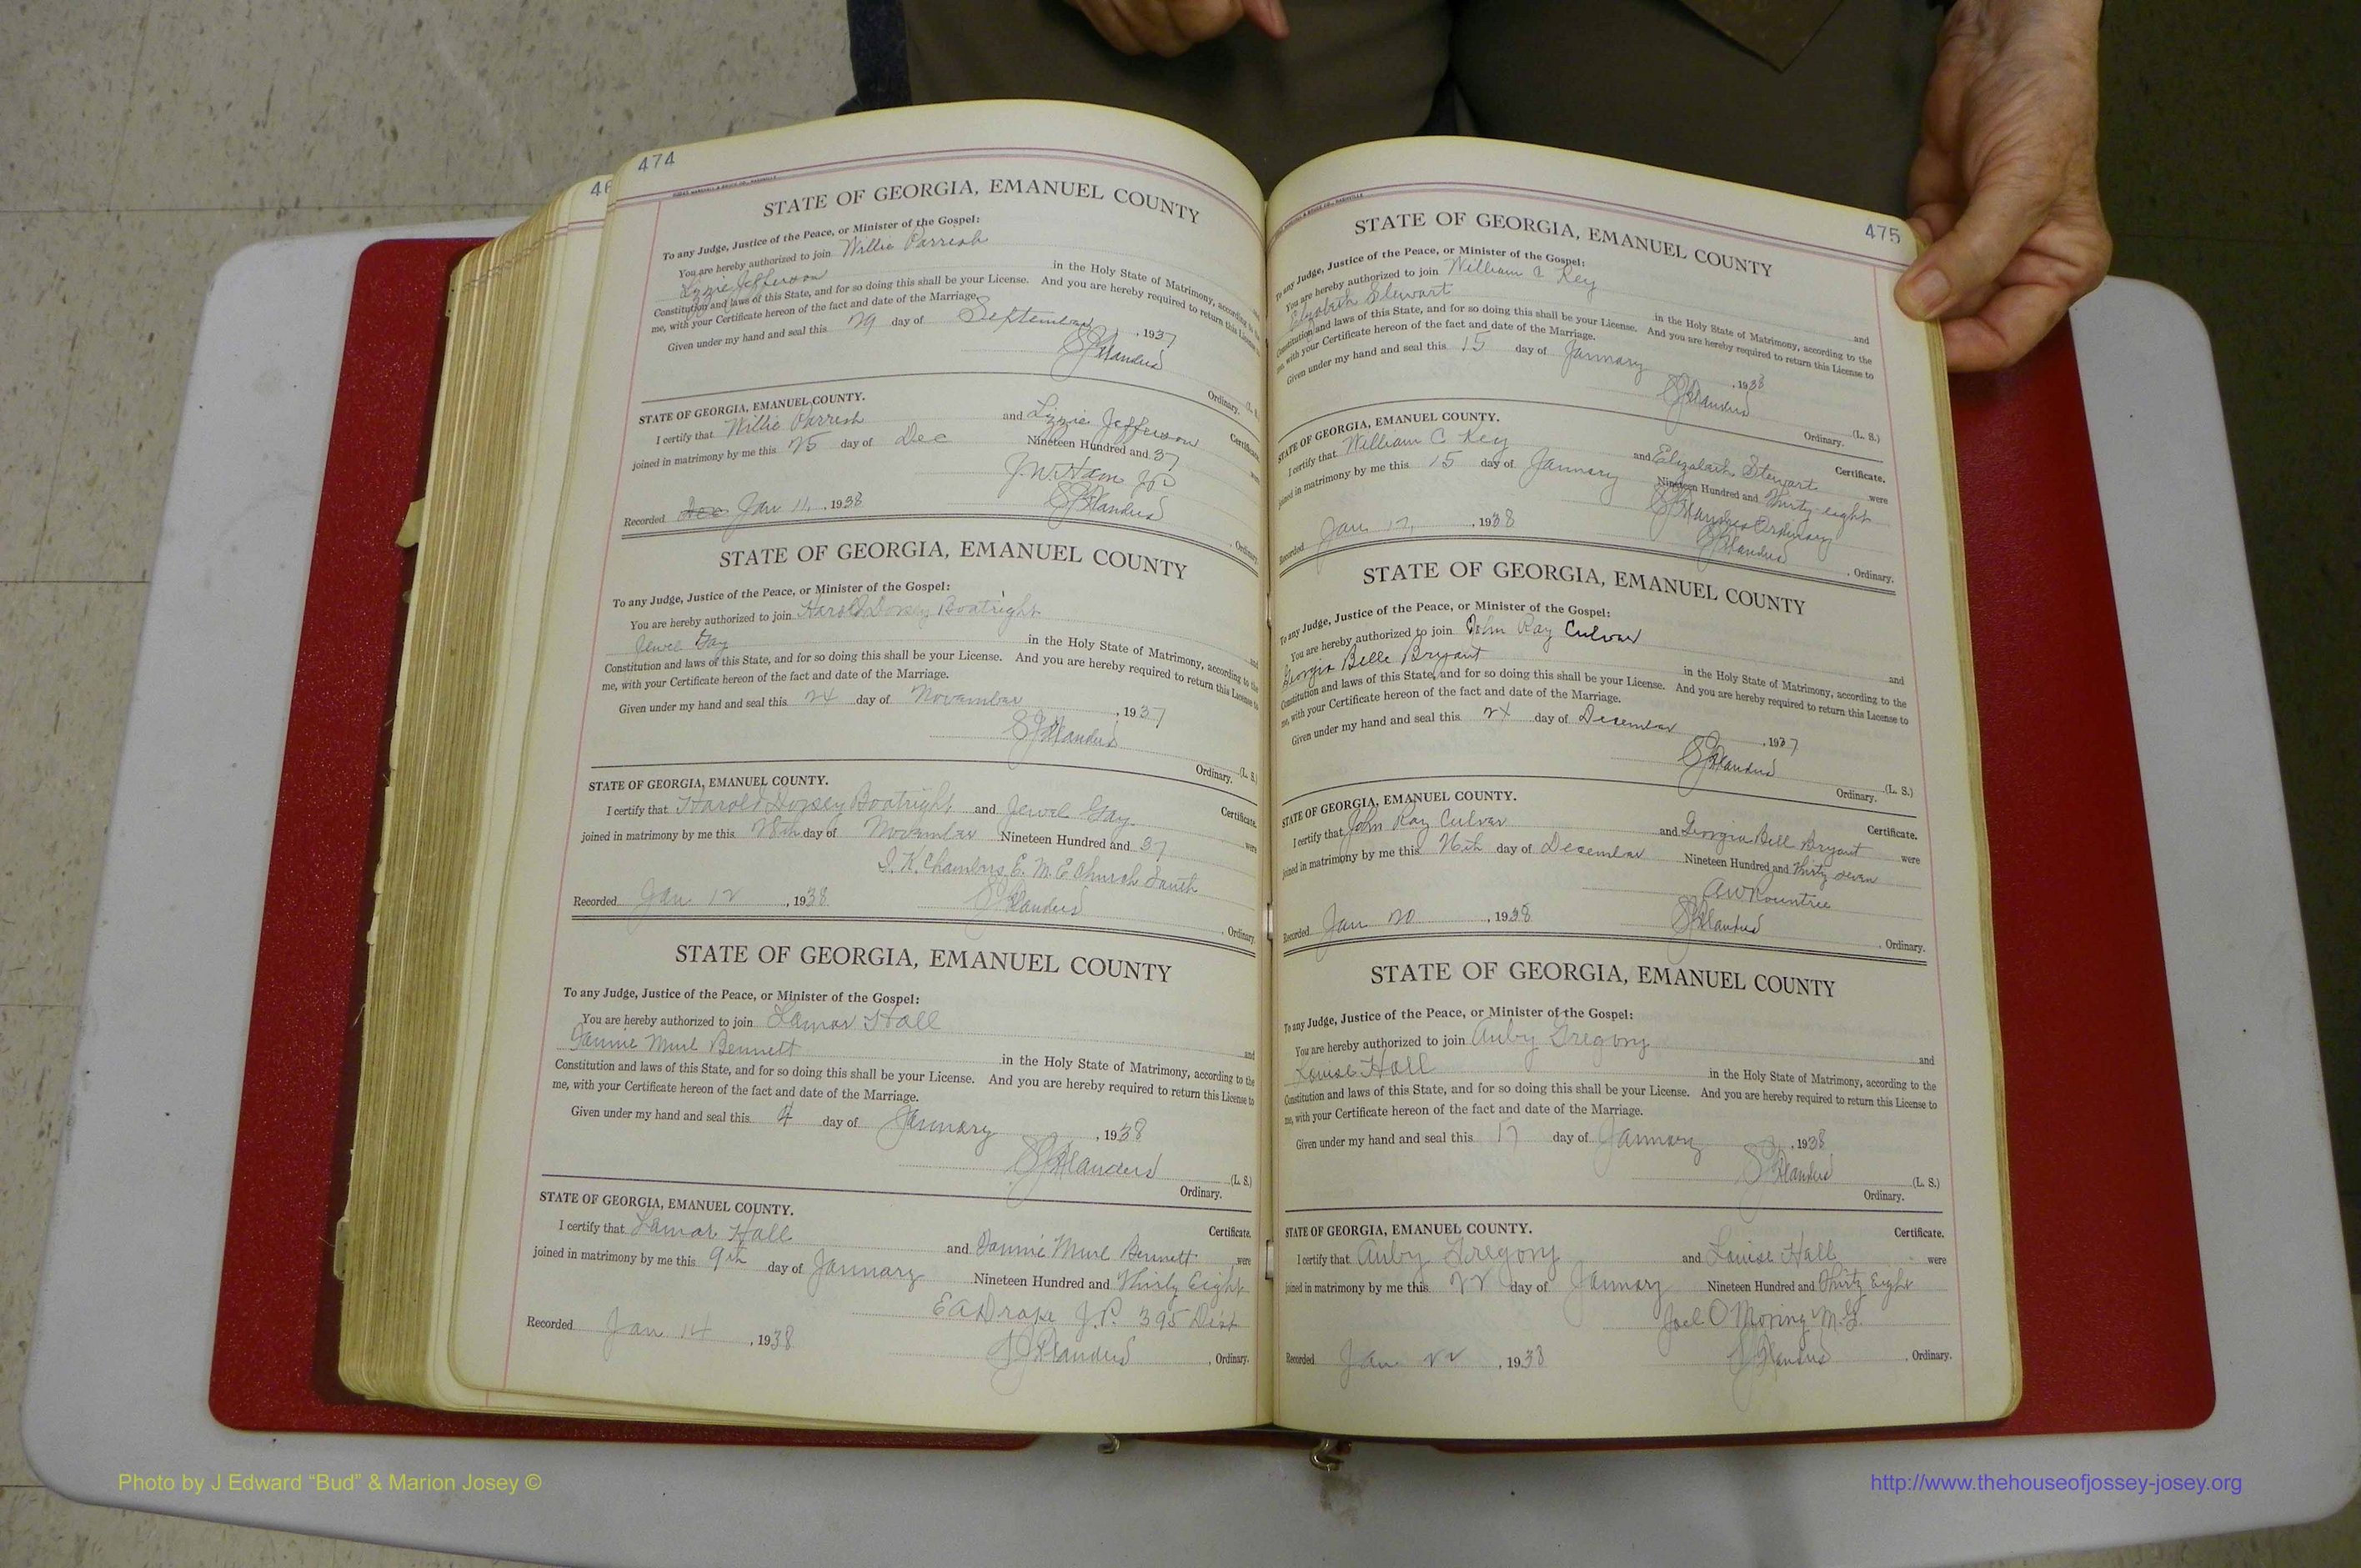 46
474
STATE OF GEORGIA, EMANUEL COUNTY
To any Judge, Justice of the Peace, or Minister of the Gospel:
You are hereby authorized to join Willie Parrish
Lizzie Jefferson in the Holy State of Matrimony, according to the
Constitution and laws of this State, and for so doing this shall be your License. And you are hereby required to return this License to
me, with your Certificate hereon of the fact and date of the Marriage.
Given under my hand and seal this 29 day of September, 1937
Flanders
Ordinary. (L. S.)
STATE OF GEORGIA, EMANUEL COUNTY.
Certificate.
I certify that Willie Parrish and Lizzie Jefferson were
joined in matrimony by me this 25 day of Dec Nineteen Hundred and 37
J. W. Ham J P
Recorded Dec Jan 11, 1938
Flanders, Ordinary.
STATE OF GEORGIA, EMANUEL COUNTY
To any Judge, Justice of the Peace, or Minister of the Gospel:
You are hereby authorized to join Harold Dorsey Boatright and
Jewel Gay in the Holy State of Matrimony, according to the
Constitution and laws of this State, and for so doing this shall be your License. And you are hereby required to return this License to
me, with your Certificate hereon of the fact and date of the Marriage.
Given under my hand and seal this 24 day of November, 1937
Flanders
Ordinary. (L. S.)
STATE OF GEORGIA, EMANUEL COUNTY.
Certificate.
I certify that Harold Dorsey Boatright and Jewel Gay were
joined in matrimony by me this 28th day of November Nineteen Hundred and 37
K. Chambers E. M. E Church South
Recorded Jan 12, 1938
Flanders, Ordinary.
STATE OF GEORGIA, EMANUEL COUNTY
To any Judge, Justice of the Peace, or Minister of the Gospel:
You are hereby authorized to join Lamar Hall and
Murl Bennett in the Holy State of Matrimony, according to the
Constitution and laws of this State, and for so doing this shall be your License. And you are hereby required to return this License to
me, with your Certificate hereon of the fact and date of the Marriage.
Given under my hand and seal this 4 day of January, 1938
Flanders
Ordinary. (L. S.)
STATE OF GEORGIA, EMANUEL COUNTY.
Certificate.
I certify that Lamar Hall and Murl Bennett were
joined in matrimony by me this 9th day of January Nineteen Hundred and Thirty Eight
E A Drake J. P. 395 Dist
Recorded Jan 14, 1938
Flanders, Ordinary.
475
STATE OF GEORGIA, EMANUEL COUNTY
To any Judge, Justice of the Peace, or Minister of the Gospel:
You are hereby authorized to join William C Key and
Elizabeth Stewart in the Holy State of Matrimony, according to the
Constitution and laws of this State, and for so doing this shall be your License. And you are hereby required to return this License to
me, with your Certificate hereon of the fact and date of the Marriage.
Given under my hand and seal this 15 day of January, 1938
Flanders
Ordinary. (L. S.)
STATE OF GEORGIA, EMANUEL COUNTY.
Certificate.
I certify that William C Key and Elizabeth Stewart were
joined in matrimony by me this 15 day of January Nineteen Hundred and Thirty eight
Flanders Ordinary
Recorded Jan 17, 1938
Flanders, Ordinary.
STATE OF GEORGIA, EMANUEL COUNTY
To any Judge, Justice of the Peace, or Minister of the Gospel:
You are hereby authorized to join John Ray Culver and
Georgia Belle Bryant in the Holy State of Matrimony, according to the
Constitution and laws of this State, and for so doing this shall be your License. And you are hereby required to return this License to
me, with your Certificate hereon of the fact and date of the Marriage.
Given under my hand and seal this 24 day of December, 1937
Flanders
Ordinary. (L. S.)
STATE OF GEORGIA, EMANUEL COUNTY.
Certificate.
I certify that John Ray Culver and Georgia Bell Bryant were
joined in matrimony by me this 26th day of December Nineteen Hundred and Thirty seven
A W Rountree
Recorded Jan 20, 1938
Flanders, Ordinary.
STATE OF GEORGIA, EMANUEL COUNTY
To any Judge, Justice of the Peace, or Minister of the Gospel:
You are hereby authorized to join Auby Gregory and
Louise Hall in the Holy State of Matrimony, according to the
Constitution and laws of this State, and for so doing this shall be your License. And you are hereby required to return this License to
me, with your Certificate hereon of the fact and date of the Marriage.
Given under my hand and seal this 17 day of January, 1938
Flanders
Ordinary. (L. S.)
STATE OF GEORGIA, EMANUEL COUNTY.
Certificate.
I certify that Auby Gregory and Louise Hall were
joined in matrimony by me this 22 day of January Nineteen Hundred and Thirty Eight
Joel O Moring M. G.
Recorded Jan 22, 1938
Flanders, Ordinary.
Photo by J Edward “Bud” & Marion Josey ©
http://www.thehouseofjossey-josey.org